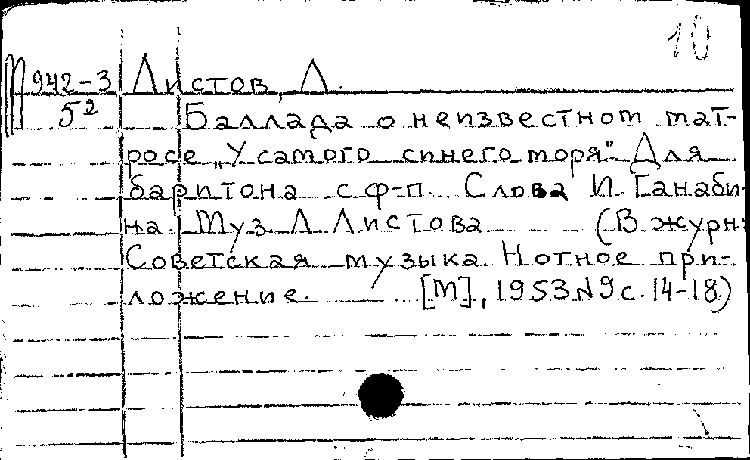 10
П 942-3 Листов, Л.
52 Баллада о неизвестном мат-
росе "У самого синего моря". Для
баритона с ф-п. Слова И. Ганаби-
на. Муз. Л. Листова (В журн:
Советская музыка. Нотное при-
ложение. [М], 1953 №9 с. 14-18)